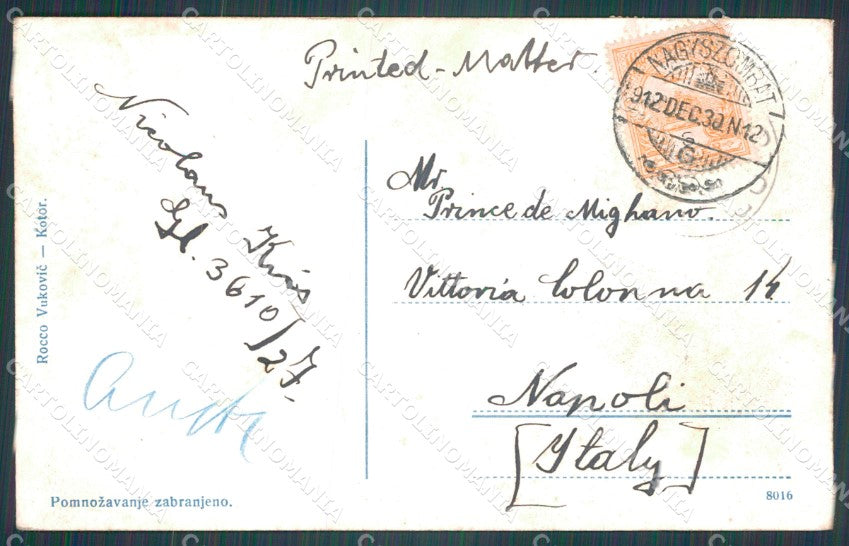 Printed-Matter.
NAGYSZOMBAT
912 DEC. 30. N12
G
Nicolaus Kiss
Gl. 3610/27.
Mr.
Prince de Mighano.
Vittoria Colonna 14
Napoli
[Italy]
Rocco Vuković — Kotor.
Pomnožavanje zabranjeno.
8016
CARTOLINOMANIA